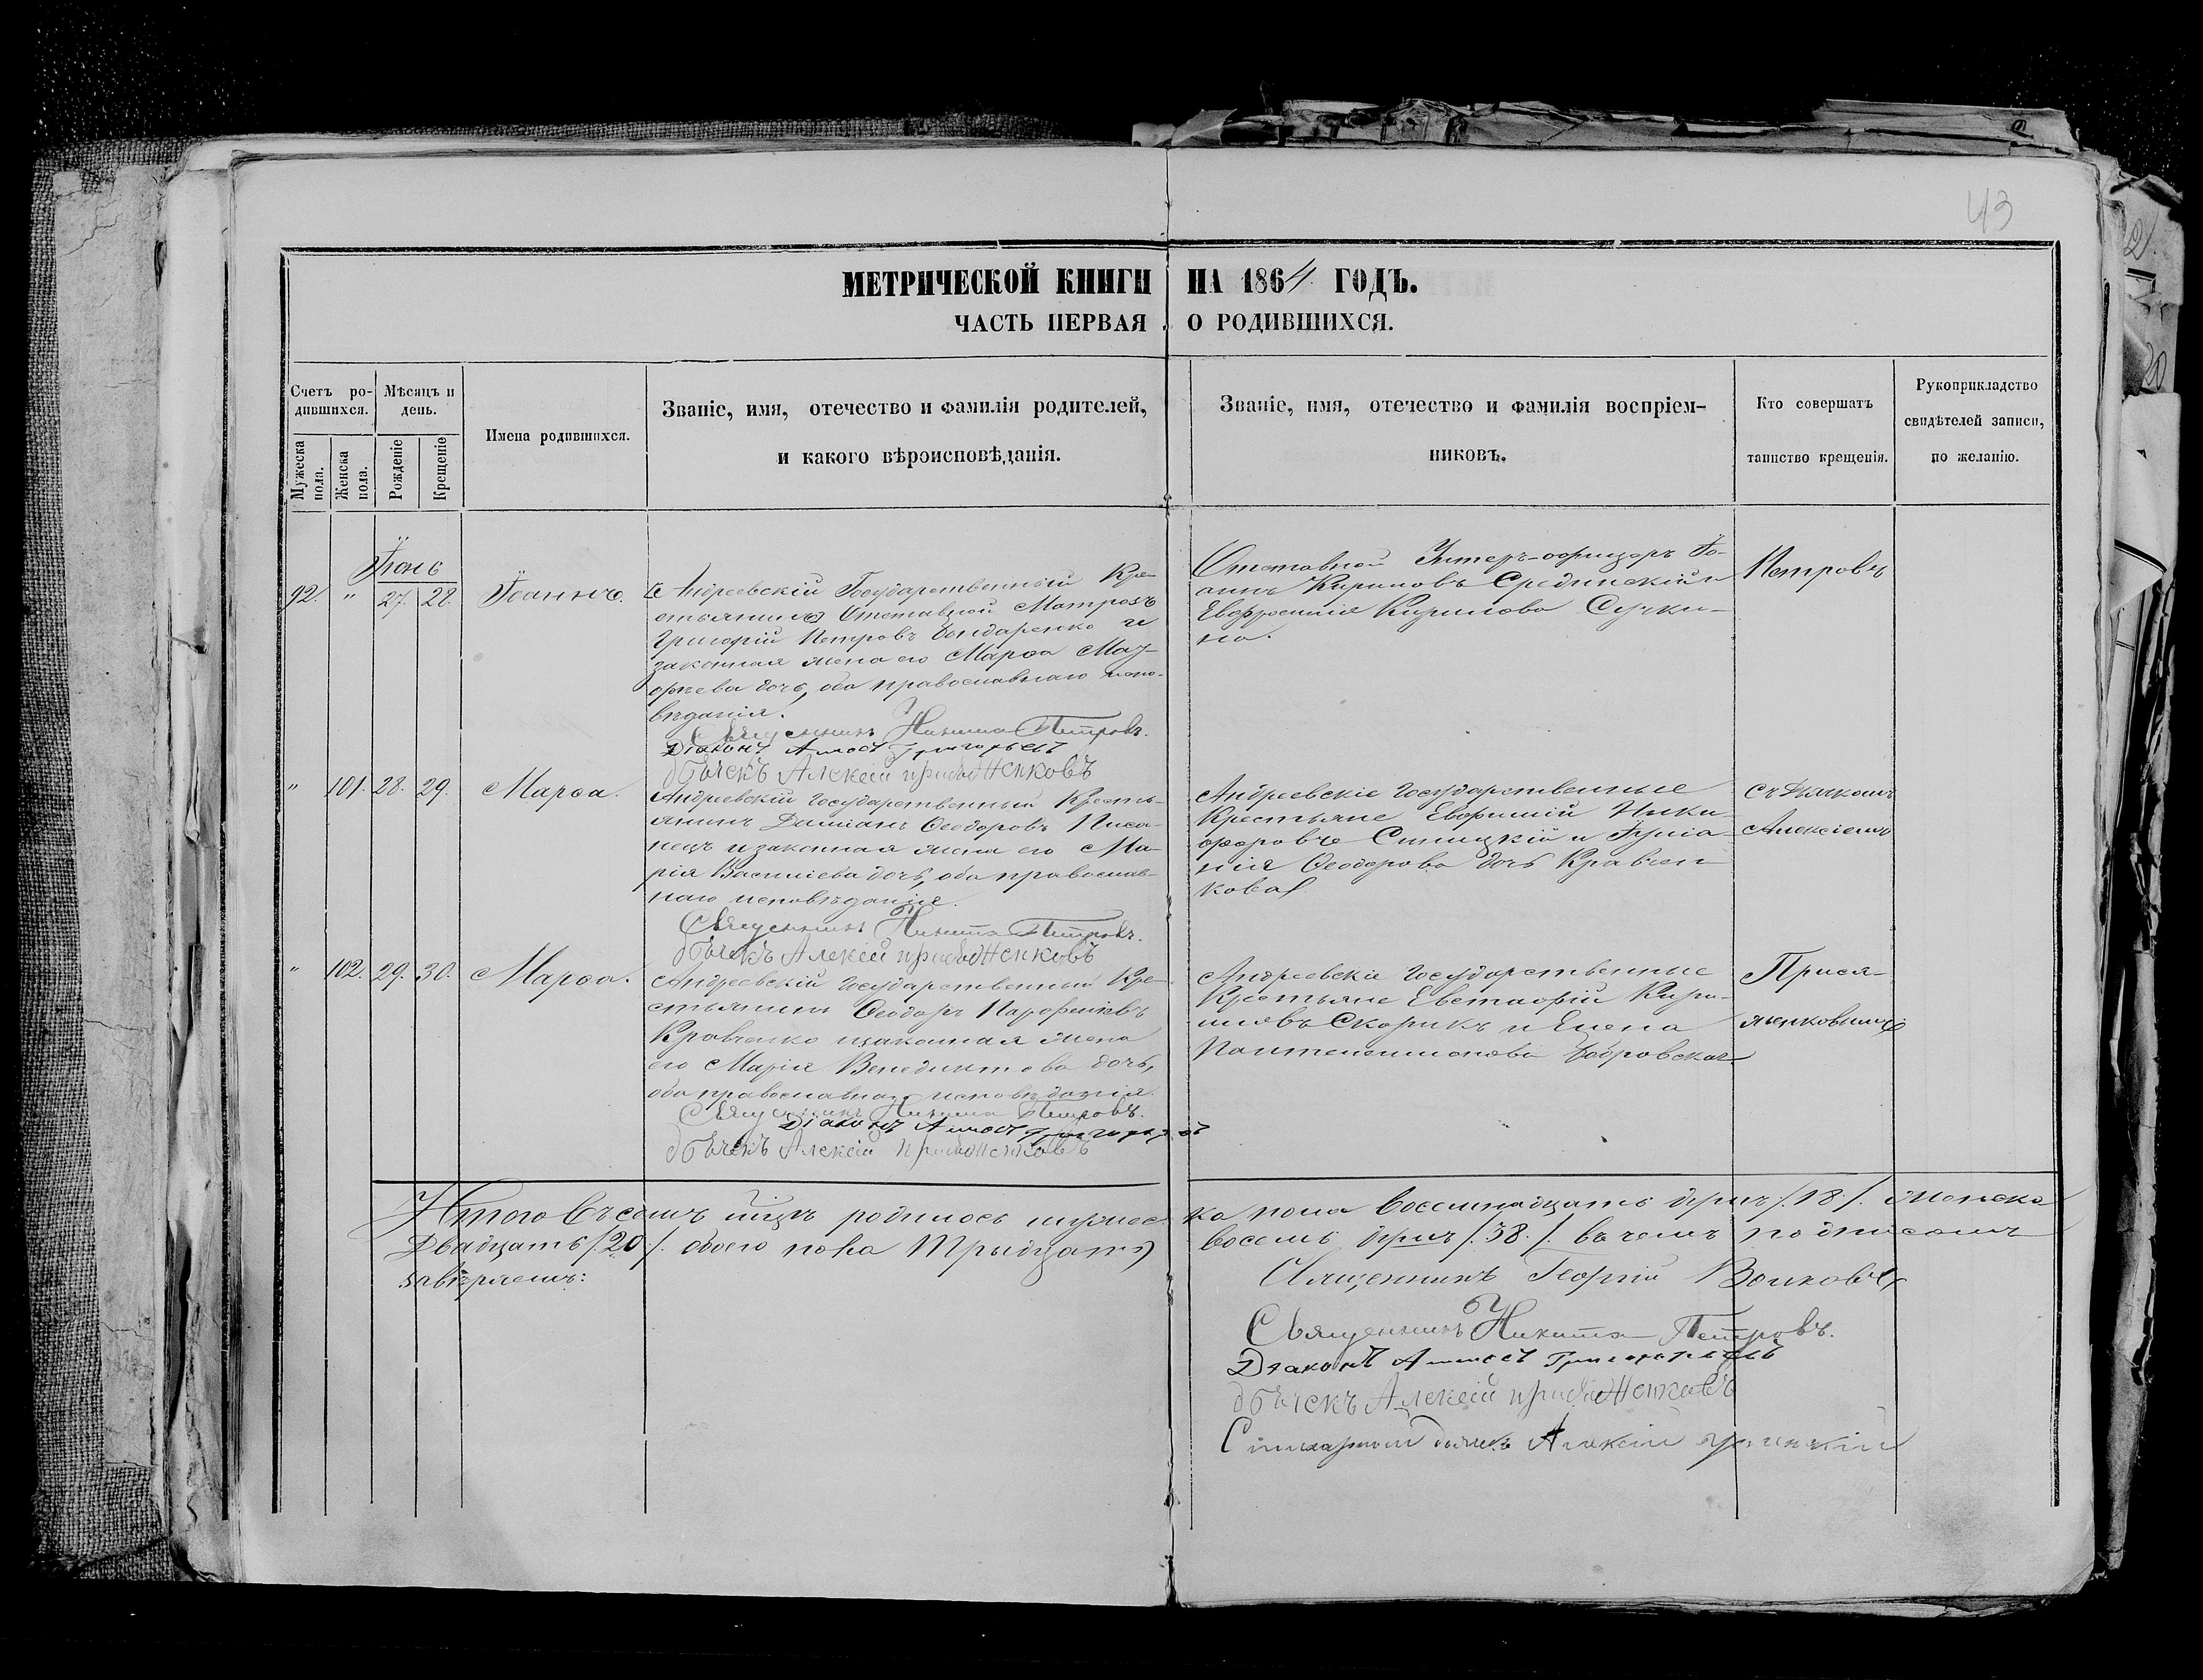 43
МЕТРИЧЕСКОЙ КНИГИ НА 1864 ГОДЪ.
ЧАСТЬ ПЕРВАЯ О РОДИВШИХСЯ.
Счетъ ро-
дившихся.
Мужеска пола.
Женска пола.
Мѣсяцъ и
день.
Рожденіе
Крещеніе
Имена родившихся.
Званіе, имя, отечество и фамилія родителей,
и какого вѣроисповѣданія.
Званіе, имя, отечество и фамилія воспріем-
никовъ.
Кто совершатъ
таинство крещенія.
Рукоприкладство
свидѣтелей записи,
по желанію.
Іюнь
92. " 27. 28. Іоаннъ.
Андреевскій Государственный Кре-
стьянинъ Отставной Матрозъ
Григорій Петровъ Бондаренко и
законная жена его Марѳа
дочь, оба православнаго испо-
вѣданія.
Священникъ Никита Петровъ.
Діаконъ Амосъ Григорьевъ
дьячекъ Алексій
Отставной Унтеръ-офицеръ Іо-
аннъ Кириловъ Срединскій и
Евфросинія Кирилова Сучки-
на.
Петровъ
" 101. 28. 29. Марѳа.
Андреевскій Государственный Кресть-
янинъ Даміанъ Ѳеодоровъ Писа-
нецъ и законная жена его Ма-
рія Василіева дочь, оба православ-
наго исповѣданія.
Священникъ Никита Петровъ.
дьячекъ Алексій
Андреевскіе Государственные
Крестьяне Евфимій Ники-
форовъ Синицкій и Іуліа-
нія Ѳеодорова дочь Кравчен-
кова
съ Дьячкомъ
Алексіемъ
" 102. 29. 30. Марѳа.
Андреевскій Государственный Кре-
стьянинъ Ѳеодоръ
Кравченко и законная жена
его Марія Венедиктова дочь,
оба православнаго исповѣданія.
Священникъ Никита Петровъ.
Діаконъ Амосъ Григорьевъ
дьячекъ Алексій
Андреевскіе Государственные
Крестьяне Евстафій Кири-
ловъ Скорикъ и Елена
Пантелеимонова Бобровская
Итого въ семъ родилось мужес- ка пола восемнадцать душъ /18/. Женска
Двадцать /20/. обоего пола Тридцать восемь душъ /38./ въ чемъ подписомъ
завѣряемъ:
Священникъ Георгій Волковъ
Священникъ Никита Петровъ.
Діаконъ Амосъ Григорьевъ
дьячекъ Алексій
Стихарный дьячекъ Алексій